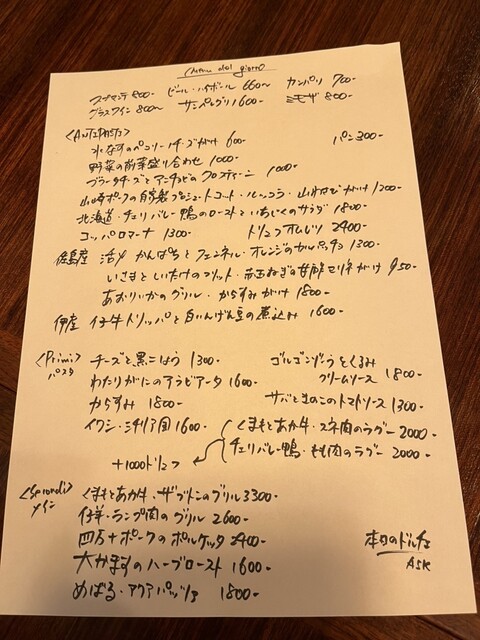 Menu del giorno
スプマンテ 800- ビール・ハイボール 660〜 カンパリ 700-
グラスワイン 800〜 サンペレグリノ 600- ミモザ 800-
<Antipasti>
水なすのペコリーノチーズがけ 600- パン 300-
野菜の前菜盛り合わせ 1000-
ブラータチーズとアンチョビのクロスティーニ 1000-
山崎ポークの自家製プロシュートコット・ルッコラ・山わさびがけ 1200-
北海道・チェリバレー鴨のローストといちじくのサラダ 1800-
コッパロマーナ 1300- トリュフオムレツ 2400-
佐島産 活〆 かんぱちとフェンネル・オレンジのカルパッチョ 1300-
いさきとしいたけのフリット・赤玉ねぎの甘酢マリネがけ 950-
あおりいかのグリル・からすみがけ 1800-
伊産 仔牛トリッパと白いんげん豆の煮込み 1600-
<Primi> チーズと黒こしょう 1300- ゴルゴンゾーラとくるみ
パスタ わたりがにのアラビアータ 1600- クリームソース 1800-
からすみ 1800- サバときのこのトマトソース 1300-
イワシ・シチリア風 1600- くまもとあか牛・スネ肉のラグー 2000-
チェリバレー鴨・もも肉のラグー 2000-
+1000トリュフ
<Secondi> くまもとあか牛・ザブトンのグリル 3300-
メイン 仔羊・ランプ肉のグリル 2600-
四万十ポークのポルケッタ 2400- 本日のドルチェ
大かますのハーブロースト 1600- ASK
めばる・アクアパッツァ 1800-